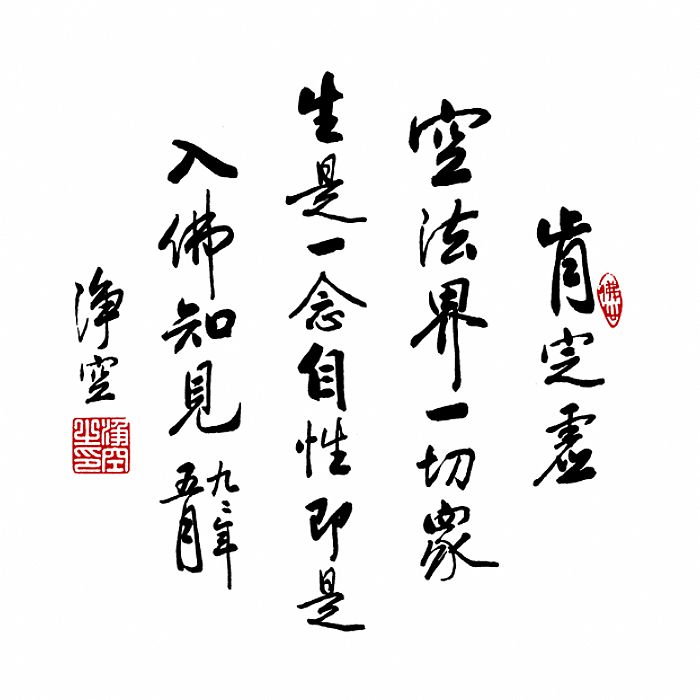 肯定虛
空法界一切眾
生是一念自性即是
入佛知見
九二年
五月
淨空
淨空之印